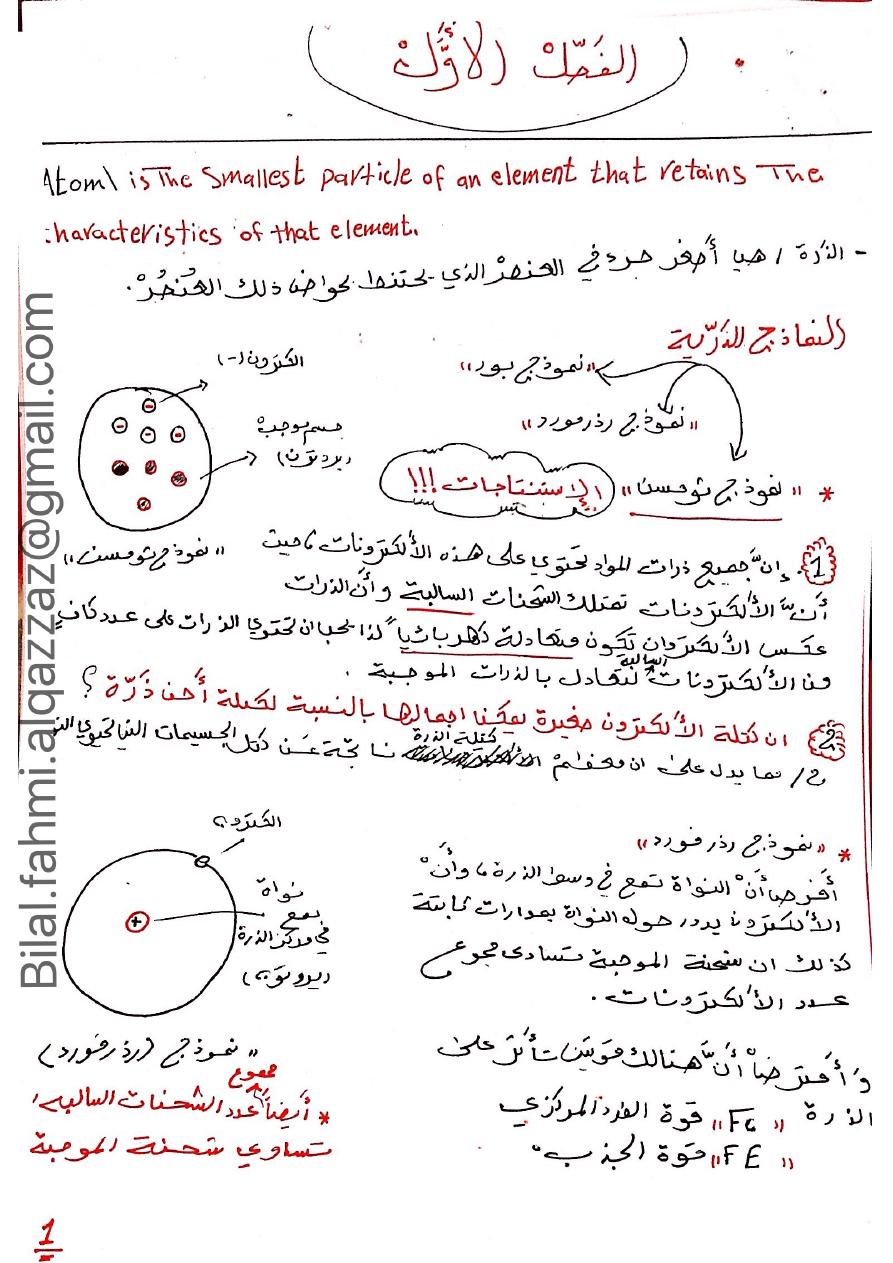 الفصل الأول
Atom\ is The Smallest particle of an element that retains The
characteristics of that element.
- الذرة / هيا أصغر جزء في العنصر الذي يحتفظ بخواص ذلك العنصر.
النماذج الذرية
"نموذج بور"
"نموذج رذرفورد"
* "نموذج ثومسن" الاستنتاجات !!!
الكترون (-)
جسم موجب
(بروتون)
"نموذج ثومسن"
1 إن جميع ذرات المواد تحتوي على هذه الألكترونات، حيث
أن الألكترونات تمتلك الشحنات السالبة وأن الذرات
عكس الألكترون تكون متعادلة كهربائياً لذا يجب ان تحتوي الذرات على عدد كافٍ
من الألكترونات السالبة لتعادل بالذرات الموجبة.
2 ان كتلة الألكترون صغيرة يمكنا اهمالها بالنسبة لكتلة أخف ذرة؟
ج/ مما يدل على ان معظم كتلة الذرة ناتجة عن كل الجسيمات التي تحتوي
* "نموذج رذرفورد"
أفترض أن النواة تقع في وسط الذرة، وأن
الألكترون يدور حول النواة بمدارات ثابتة
كذلك ان شحنة الموجبة تساوي مجموع
عدد الألكترونات.
الكترون
نواة
تقع
في مركز الذرة
(بروتون)
"نموذج (رذرفورد)
وأفترض أن هنالك قوتين تأثر على
الذرة "Fc" قوة الطرد المركزي
"FE" قوة الجذب.
* أيضاً مجموع عدد الشحنات السالبة
تساوي شحنة الموجبة
1
Bilal.fahmi.alqazzaz@gmail.com